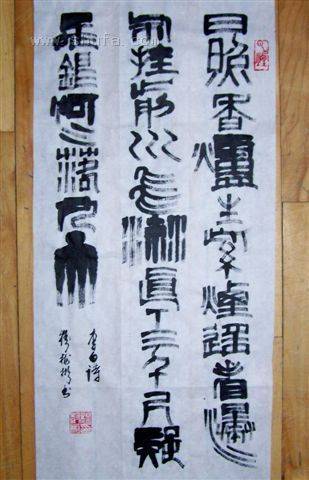 日照香爐生紫煙遙看瀑
布挂前川飛流直下三千尺疑
是銀河落九天
李白詩
书